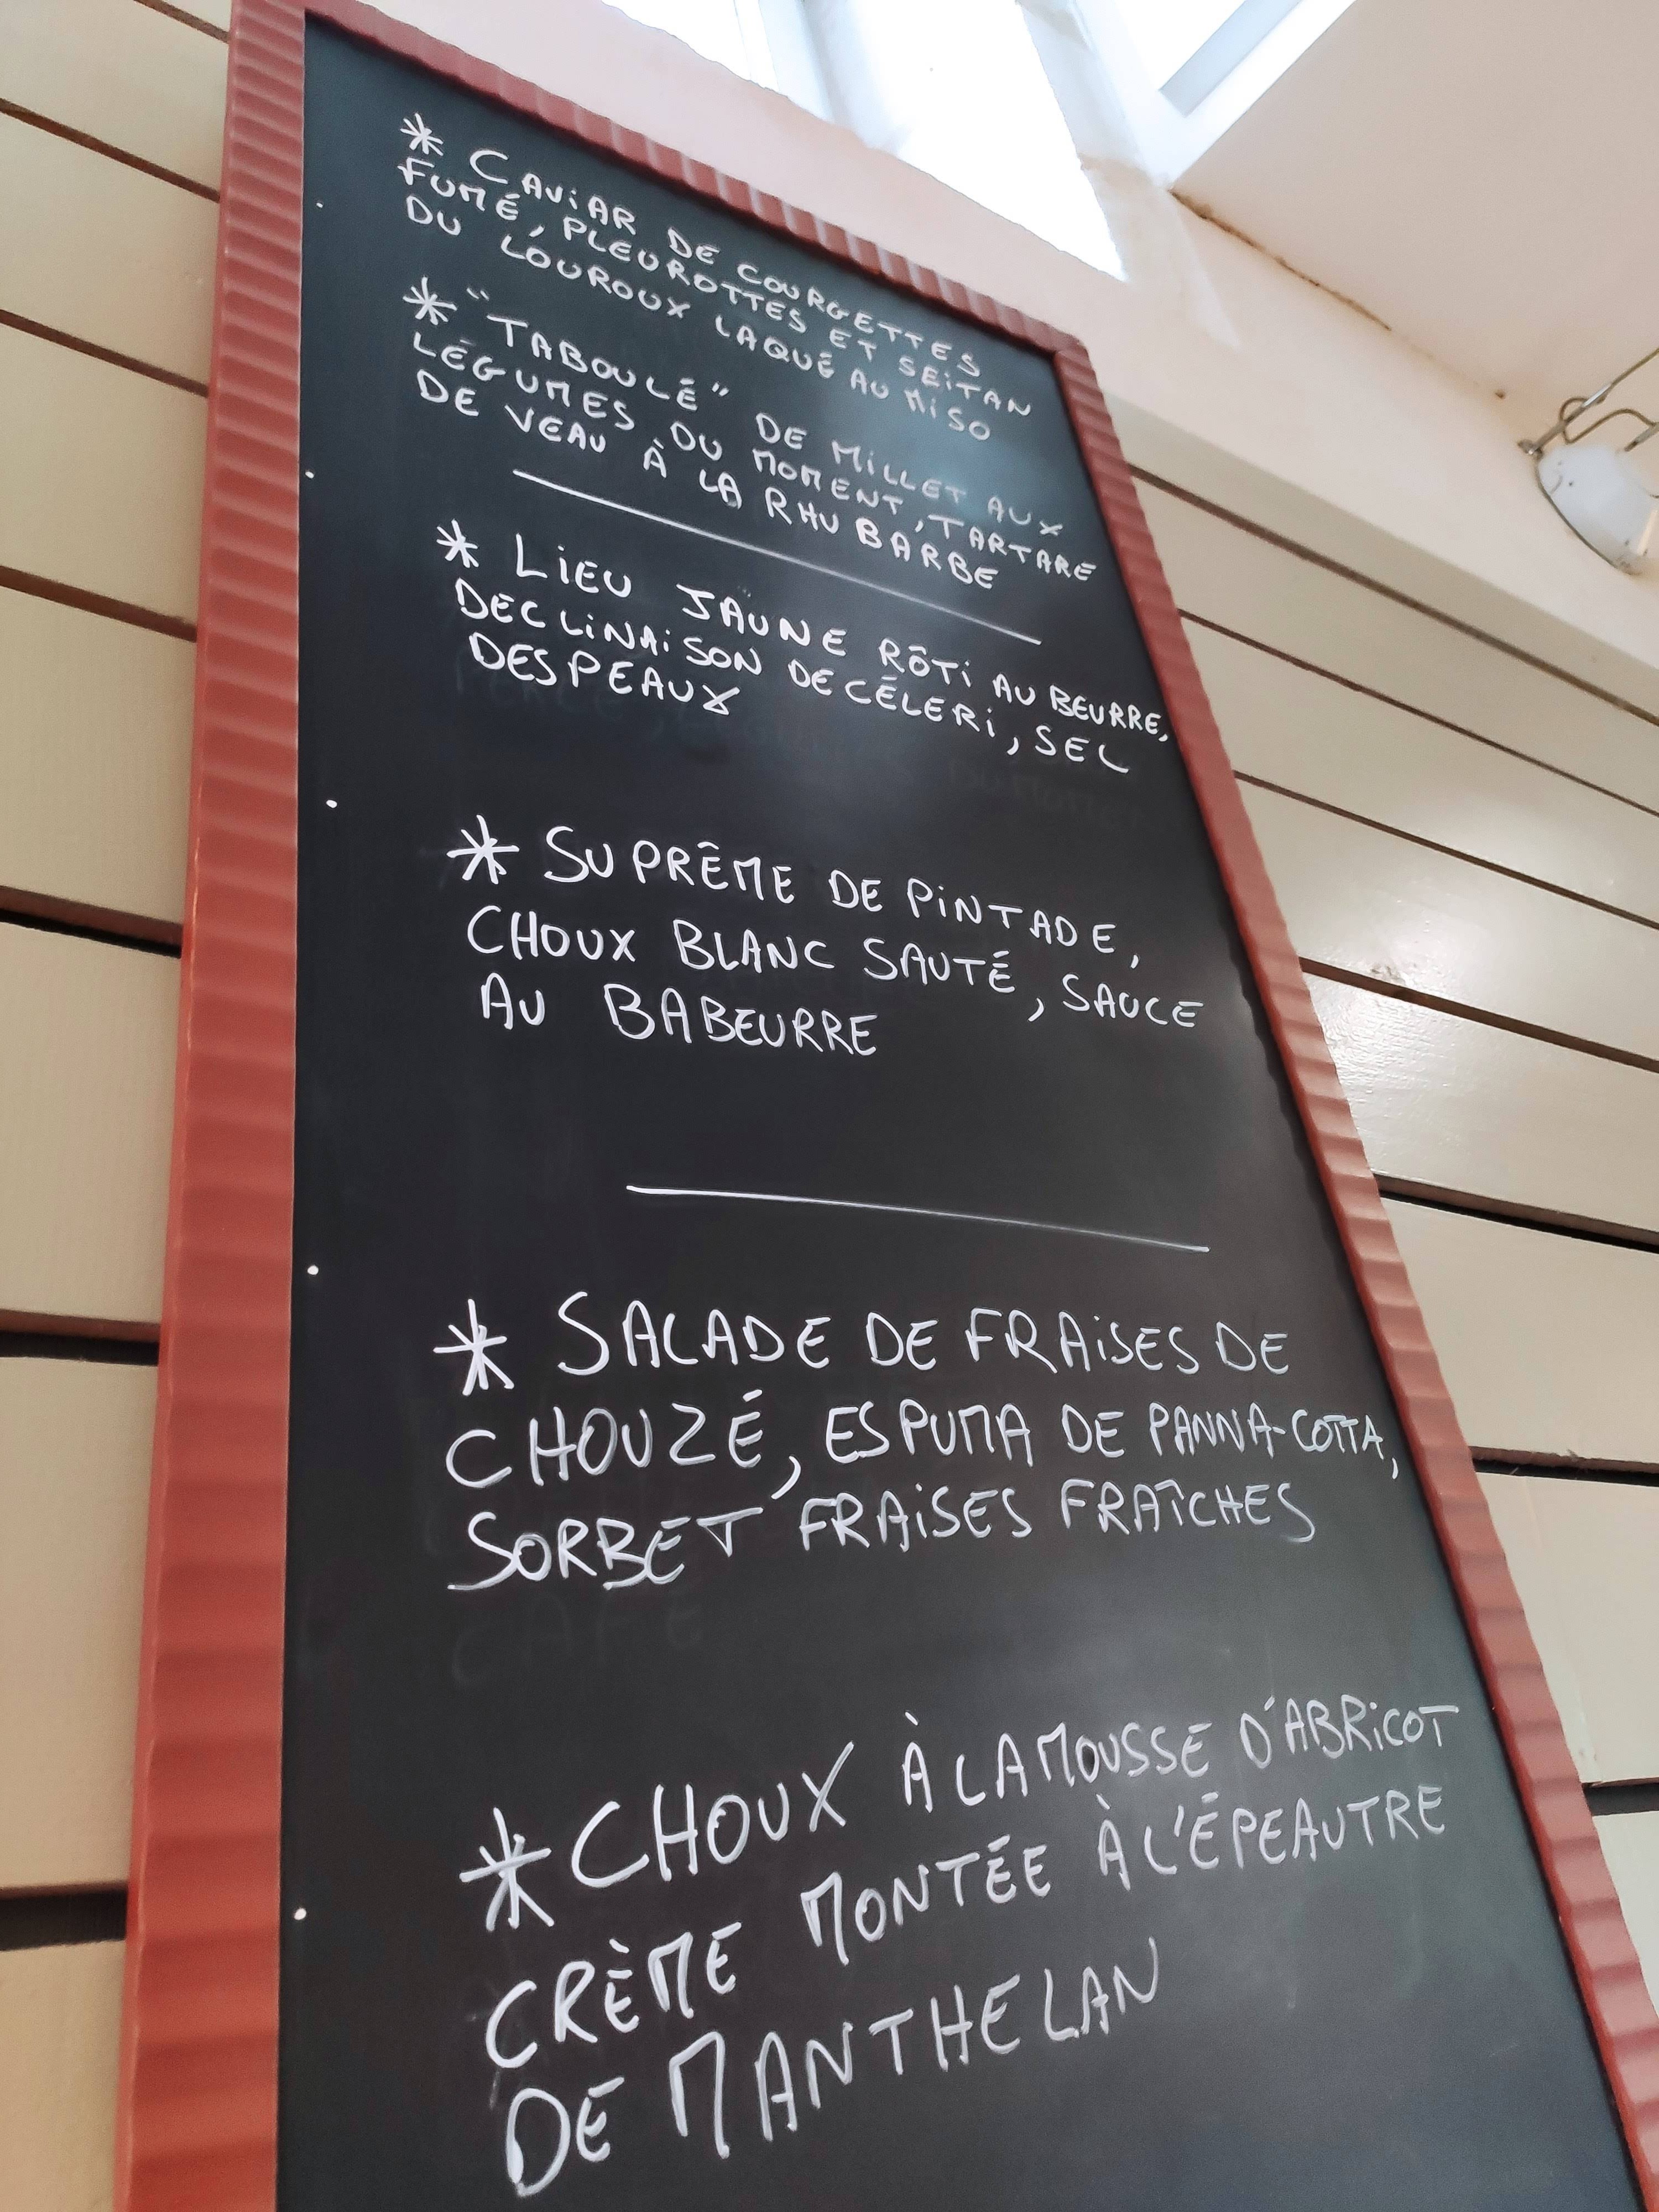 * CAViAR DE COURGETTES
FUMÉ, PLEUROTTES ET SEiTAN
DU LOUROUX LAQUÉ AU MiSO
* "TABOULÉ" DE MiLLET AUX
LÉGUMES DU MOMENT, TARTARE
DE VEAU À LA RHUBARBE
* LiEU JAUNE RÔTi AU BEURRE,
DECLiNAiSON DE CÉLERi, SEL
DES PEAUX
* SUPRÊME DE PiNTADE,
CHOUX BLANC SAUTÉ, SAUCE
AU BABEURRE
* SALADE DE FRAiSES DE
CHOUZÉ, ESPUMA DE PANNA-COTTA,
SORBET FRAiSES FRAÎCHES
* CHOUX À LA MOUSSE D'ABRiCOT
CRÈME MONTÉE À L'ÉPEAUTRE
DE MANTHELAN